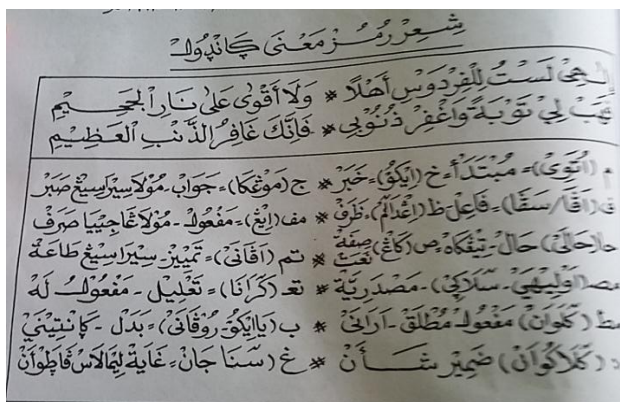 شعر رمز معنى ڮاندول
إلهي لست للفردوس أهلا * ولا أقوى على نار الجحيم
فهب لي توبة واغفر ذنوبي * فإنك غافر الذنب العظيم
م (اُتَوِيْ) = مبتدأ = خ (اِيْكُوْ) = خبر * ج (مَوڠْكَا) = جواب - مولا سيرا سيڠ صبر
ف (اَڤَا/سَڤَا) = فاعل ظ (اِڠدالم) = ظرف * مف (اِڠ) = مفعول - مولا ڠاجييا صرف
حا (حالَيْ) حال - تيڠكاه ص (كاڠ) صفة نعت * تم (اَڤَانَيْ) = تمييز - سيرا سيڠ طاعة
مص (اَوْلَيْهَيْ - سلاكَيْ) - مصدرية * تع (كَرَانَا) = تعليل - مفعول له
مط (كلوان) مفعول مطلق - اراني * ب (ياايكو - روڤاني) = بدل - ڮانتيني
(كلاكوان) ضمير شأن * غ (سنا جان = غاية ليمالاس فاطوان